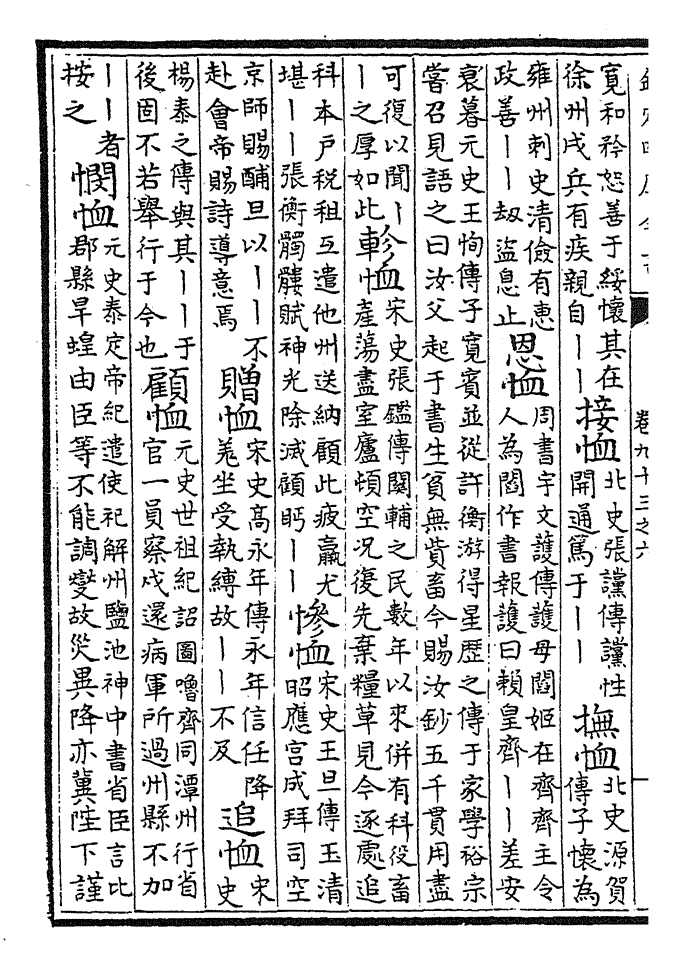 卷九十三之六
寛和矜恕善于綏懷其在
徐州戍兵有疾親自丨丨
接恤
北史張讜傳讜性
開通篤于丨丨
撫恤
北史源賀
傳子懷為
雍州刺史清儉有惠
政善丨丨刼盜息止
恩恤
周書宇文護傳護母閻姬在齊齊主令
人為閻作書報護曰賴皇齊丨丨差安
衰暮元史王恂傳子寛賓並從許衡游得星歴之傳于家學裕宗
嘗召見語之曰汝父起于書生貧無貲畜今賜汝鈔五千貫用盡
可復以聞丨
丨之厚如此
軫恤
宋史張鑑傳關輔之民數年以來併有科役畜
産蕩盡室廬頓空况復先棄糧草見今逐處追
科本戸税租互遣他州送納顧此疲羸尤
堪丨丨張衡髑髏賦神光除滅顧眄丨丨
慘恤
宋史王旦傳玉清
昭應宫成拜司空
京師賜酺旦以丨丨不
赴會帝賜詩導意焉
贈恤
宋史髙永年傳永年信任降
羌坐受執縛故丨丨不及
追恤
宋
史
楊泰之傳與其丨丨于
後固不若舉行于今也
顧恤
元史世祖紀詔圖嚕齊同潭州行省
官一員察戍還病軍所過州縣不加
丨丨者
按之
憫恤
元史泰定帝紀遣使祀解州鹽池神中書省臣言比
郡縣旱蝗由臣等不能調燮故災異降亦冀陛下謹